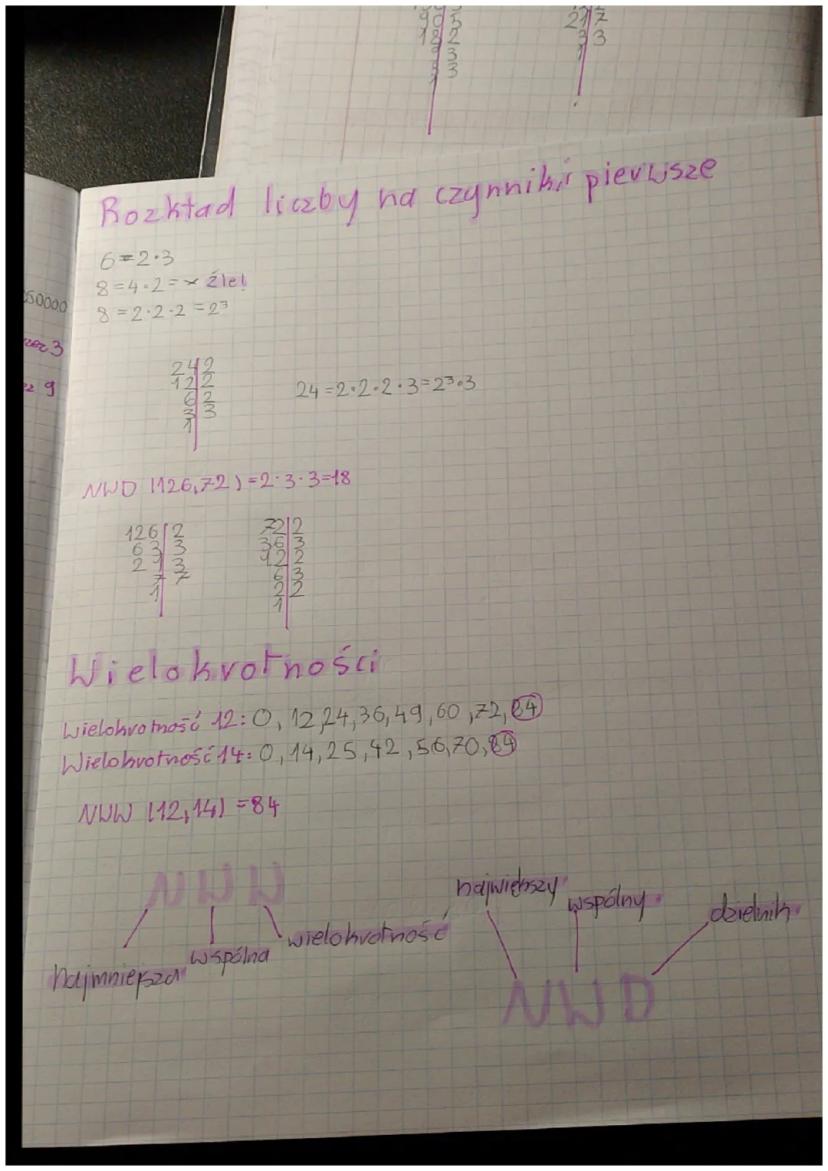 90 5
18 2
3
3
21 7
3 3
Rozkład liczby na czynniki pierwsze
6=2·3
8=4·2= źle!
8=2·2·2=2³
50000
3
9
24 2
12 2
6 2
3 3
1
24=2·2·2·3=2³·3
NWD (126,72)=2·3·3=18
126 2
63 3
21 3
7 7
1
72 2
36 3
12 2
6 3
2 2
1
Wielokrotności
Wielokrotność 12: 0, 12,24,36,49,60,72,84
Wielokrotność 14: 0,14,25,42,56,70,84
NWW (12,14)=84
NWW
najmniejsza
wspólna
wielokrotność
największy
wspólny
dzielnik
NWD